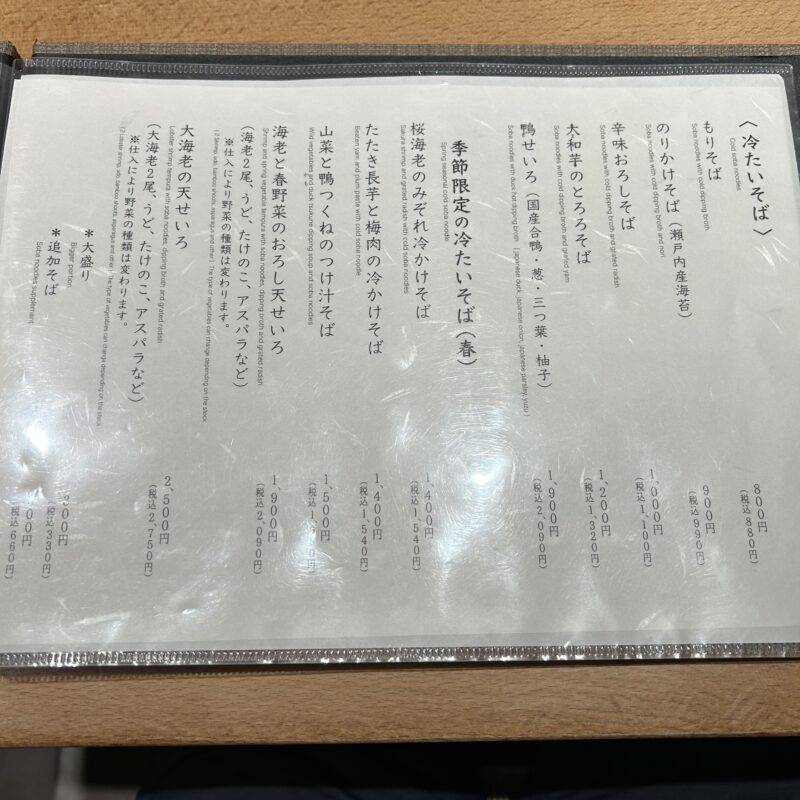 〈冷たいそば〉
Cold soba noodles
もりそば
Soba noodles with cold dipping broth
800円
(税込880円)
のりかけそば(瀬戸内産海苔)
Soba noodles with cold dipping broth and nori
900円
(税込990円)
辛味おろしそば
Soba noodles with cold dipping broth and grated radish
1,000円
(税込1,100円)
大和芋のとろろそば
Soba noodles with cold dipping broth and grated yam
1,200円
(税込1,320円)
鴨せいろ(国産合鴨・葱・三つ葉・柚子)
Soba noodles with duck hot dipping broth (japanese duck, japanese onion, japanese parsley, yuzu)
1,900円
(税込2,090円)
季節限定の冷たいそば(春)
Spring seasonal cold soba noodle
桜海老のみぞれ冷かけそば
Sakura shrimp and grated radish with cold soba noodles
1,400円
(税込1,540円)
たたき長芋と梅肉の冷かけそば
Beaten yam and plum paste with cold soba noodle
1,400円
(税込1,540円)
山菜と鴨つくねのつけ汁そば
Wild vegetables and duck tsukune dipping soup and soba noodles
1,500円
海老と春野菜のおろし天せいろ
Shrimp and spring vegetable tempura with soba noodles, dipping broth and grated radish
(海老2尾、うど、たけのこ、アスパラなど)
※仕入により野菜の種類は変わります。
(2 Shrimp, udo, bamboo shoots, asparagus and other) The type of vegetables can change depending on the stock
1,900円
(税込2,090円)
大海老の天せいろ
Lobster shrimp tempura with soba noodles, dipping broth and grated radish
(大海老2尾、うど、たけのこ、アスパラなど)
※仕入により野菜の種類は変わります。
(2 Lobster shrimp, udo, bamboo shoots, asparagus and other) The type of vegetables can change depending on the stock
2,500円
(税込2,750円)
＊大盛り
Bigger portion
300円
(税込330円)
＊追加そば
Soba noodles supplement
00円
(税込660円)